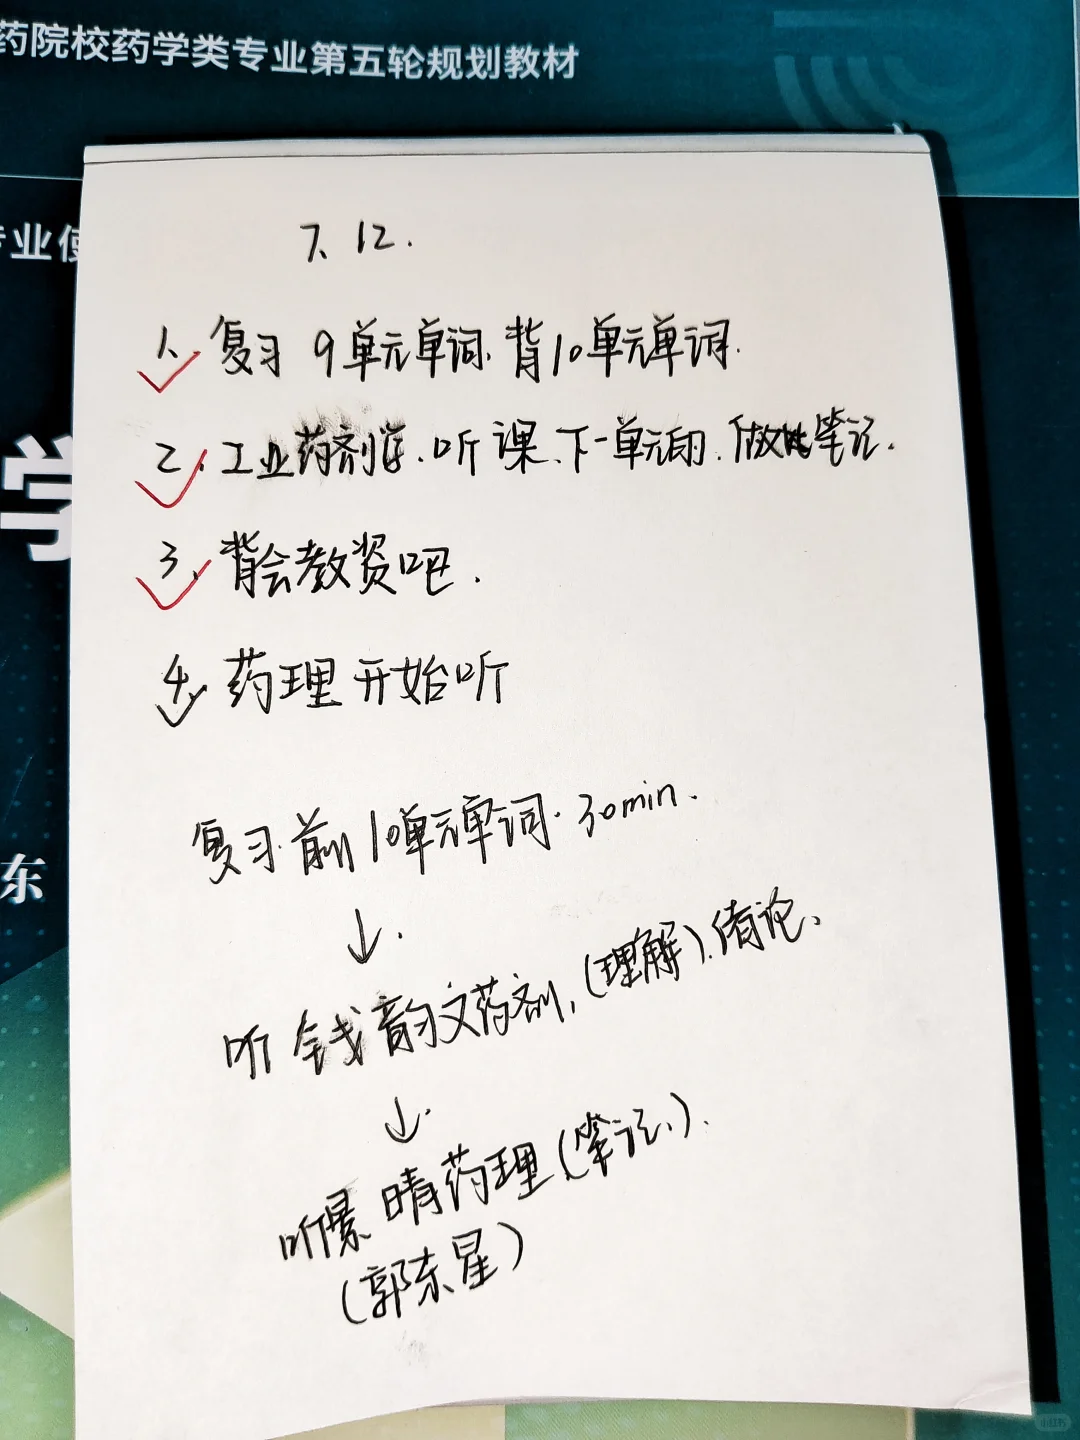 药院校药学类专业第五轮规划教材
专业使
学
东
7.12.
1、复习 9单元单词.背10单元单词.
2、工业药剂学.听课.下一单元的.做出笔记.
3、背会教资吧.
4、药理开始听
复习前10单元单词.30min.
↓.
听 钱韵文药剂,(理解).绪论、
↓.
听景晴药理(笔记、).
(郭东星)
小红书